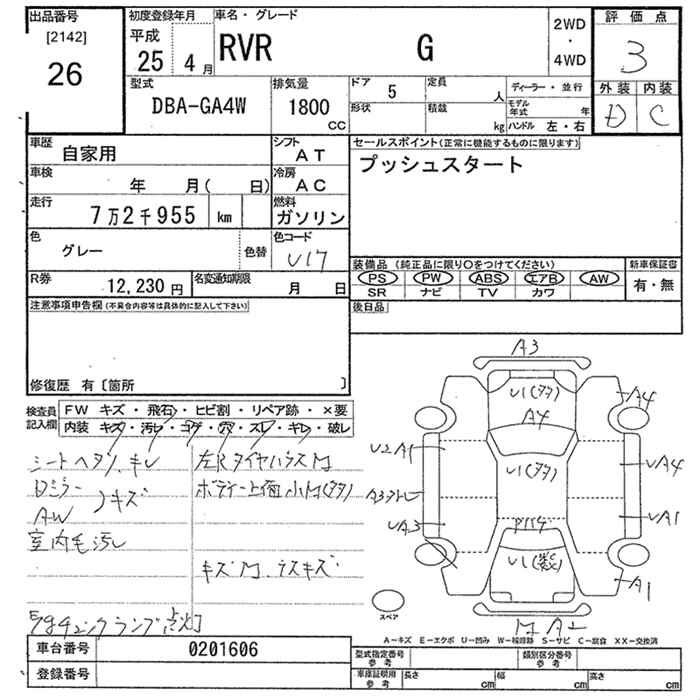 出品番号
[2142]
26
初度登録年月
平成
25 4月
車名・グレード
RVR G
2WD
・
4WD
評価点
3
外装 内装
D C
型式
DBA-GA4W
排気量
1800
CC
ドア 5
定員 人
形状
積載 kg
ディーラー・並行
モデル年式 年
ハンドル 左・右
車歴
自家用
シフト
AT
セールスポイント(正常に機能するものに限ります)
プッシュスタート
車検
年 月( 日)
冷房
AC
走行
7万2千955 km
燃料
ガソリン
色
グレー
色替
色コード
U17
装備品(純正品に限り○をつけてください)
新車保証書
PS PW ABS エアB AW
SR ナビ TV カワ
有・無
R券
12,230円
名変通知期限
月 日
後日品
注意事項申告欄(不具合内容等は具体的に記入して下さい)
修復歴 有〔箇所 〕
検査員記入欄
FW キズ・飛石・ヒビ割・リペア跡・×要
内装 キズ・汚レ・コゲ・穴・スレ・キレ・破レ
シートヘタリ、キレ
左Rタイヤハウス
Dミラー
AW
キズ
室内毛汚レ
キズ
ラスキズ
チェックランプ点灯
A3
U1(多タ)
A4
A4
U2 A1
U1(多タ)
UA4
A3
UA3
UA1
U1
A1
A2
スペア
A-キズ E-エクボ U-凹み W-補修跡 S-サビ C-腐食 XX-交換済
車台番号
0201606
登録番号
型式指定番号
参考
類別区分番号
参考
車庫証明用
参考
長さ cm
幅 cm
高さ cm